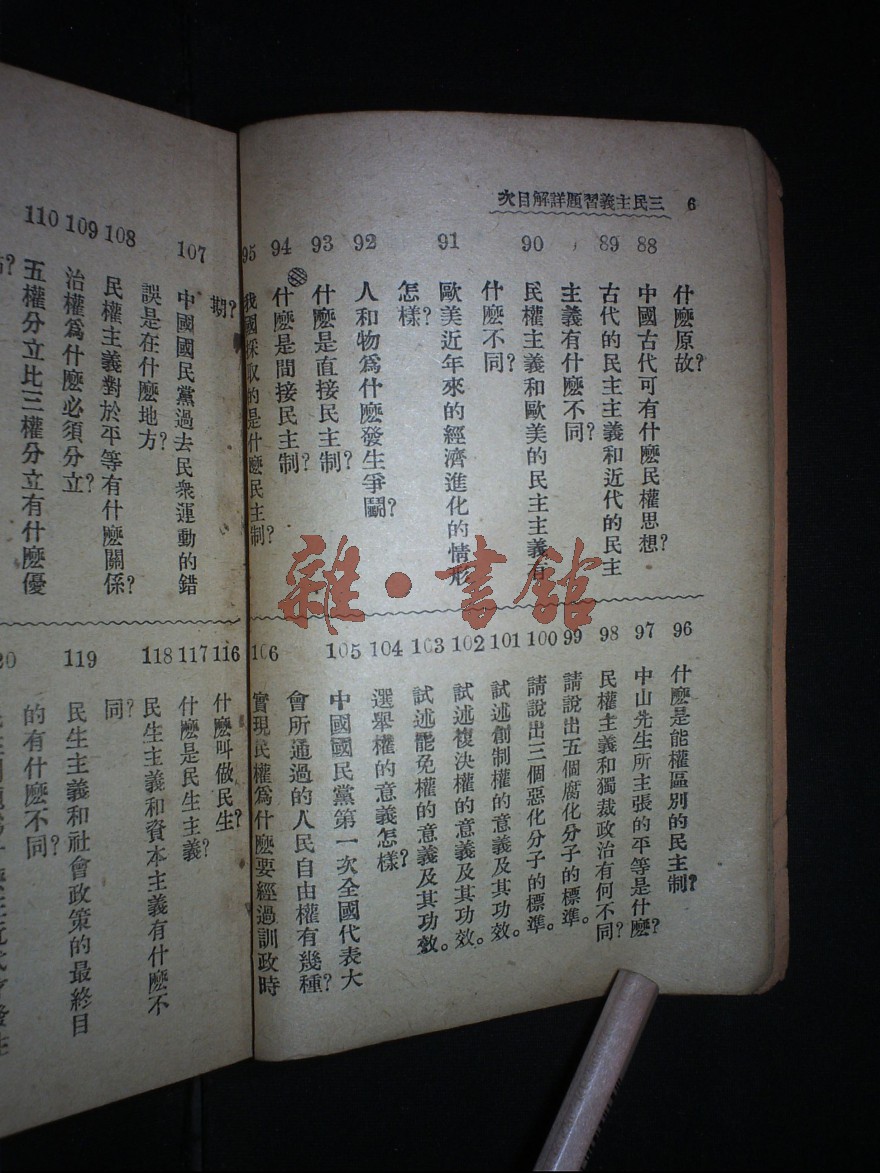 6
三民主義習題詳解目次
什麼原故?
88 中國古代可有什麼民權思想?
89 古代的民主主義和近代的民主
主義有什麼不同?
90 民權主義和歐美的民主主義有
什麼不同?
91 歐美近年來的經濟進化的情形
怎樣?
92 人和物爲什麼發生爭鬭?
93 什麼是直接民主制?
94 什麼是間接民主制?
95 我國採取的是什麼民主制?
96 什麼是能權區別的民主制?
97 中山先生所主張的平等是什麼?
98 民權主義和獨裁政治有何不同?
99 請說出五個腐化分子的標準。
100 請說出三個惡化分子的標準。
101 試述創制權的意義及其功效。
102 試述複決權的意義及其功效。
103 試述罷免權的意義及其功效。
104 選舉權的意義怎樣?
105 中國國民黨第一次全國代表大
會所通過的人民自由權有幾種?
106 實現民權爲什麼要經過訓政時
期?
107 中國國民黨過去民衆運動的錯
誤是在什麼地方?
108 民權主義對於平等有什麼關係?
109 治權爲什麼必須分立?
110 五權分立比三權分立有什麼優
116 什麼叫做民生?
117 什麼是民生主義?
118 民生主義和資本主義有什麼不
同?
119 民生主義和社會政策的最終目
的有什麼不同?
雜·書館